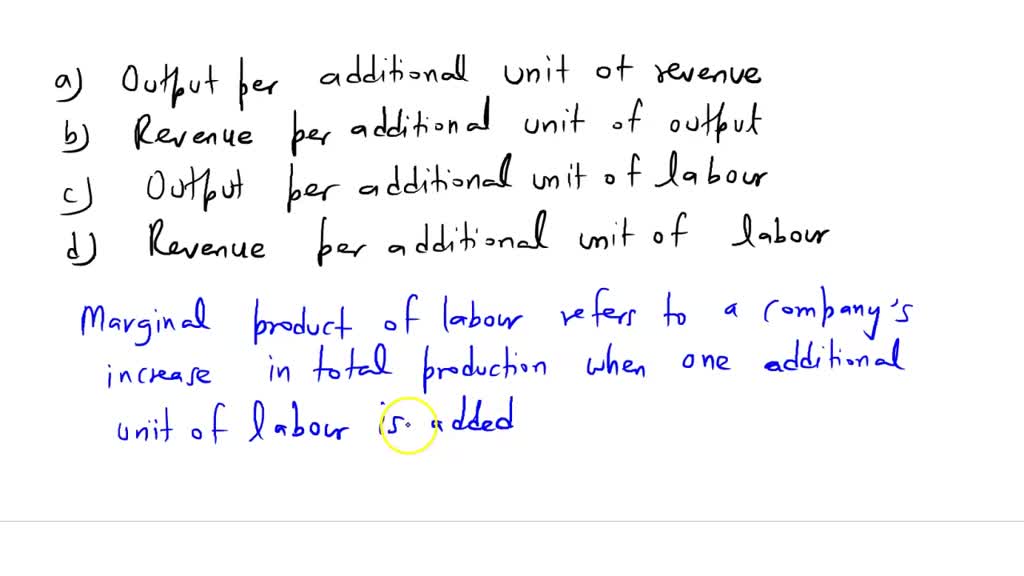 a) Output per additional unit of revenue
b) Revenue per additional unit of output
c) Output per additional unit of labour
d) Revenue per additional unit of labour
Marginal product of labour refers to a company's
increase in total production when one additional
unit of labour is added